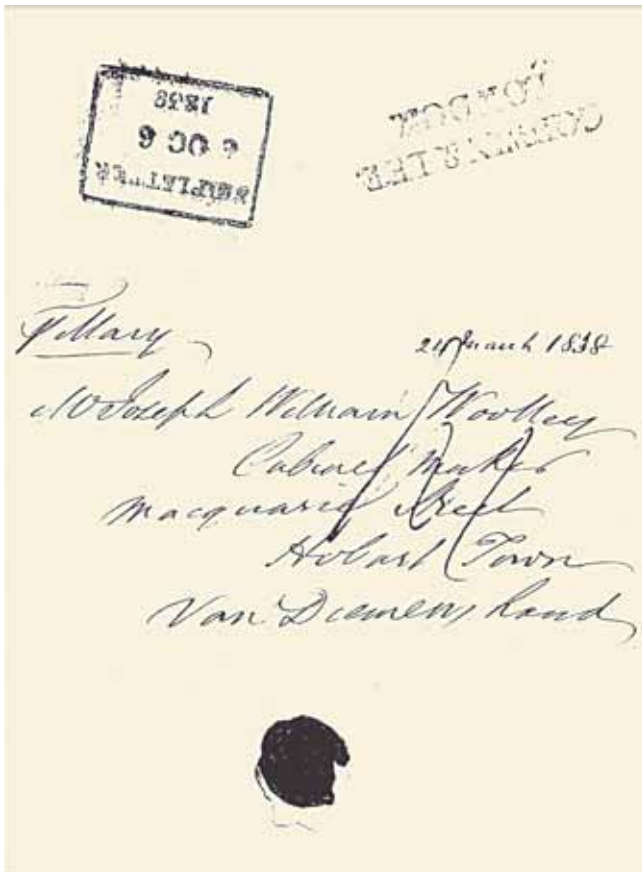 SHIP LETTER
6 OC 6
1838
LONDON
pr Mary
24 March 1838
Mr Joseph William Woolley
Cabinet Maker
Macquarie Street
Hobart Town
Van Diemens Land